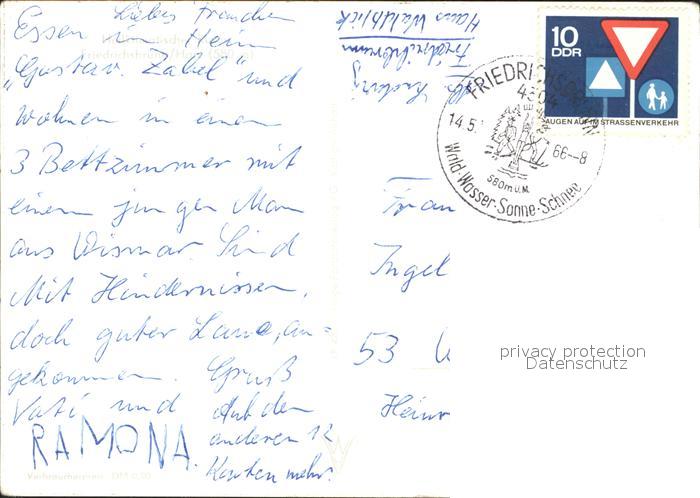 Liebes Franchen
Essen im Heim
„Gustav Zabel" und
wohnen in einem
3 Bettzimmer mit
einem jungen Mann
aus Wismar. Sind
Mit Hindernissen,
doch guter Laune, an-
gekommen. Gruß
Vati und
RAMONA.
Auf den
anderen 12
Karten mehr.
Verbraucherpreis DM 0,20
Friedrichsbrunn
Haus Waldblick
10
DDR
AUGEN AUF IM STRASSENVERKEHR
FRIEDRICHSBRUNN
4304
14.5.
66--8
580m ü. M.
Wald-Wasser-Sonne-Schnee
Frau
Ingel
53 W
Heinr
privacy protection
Datenschutz